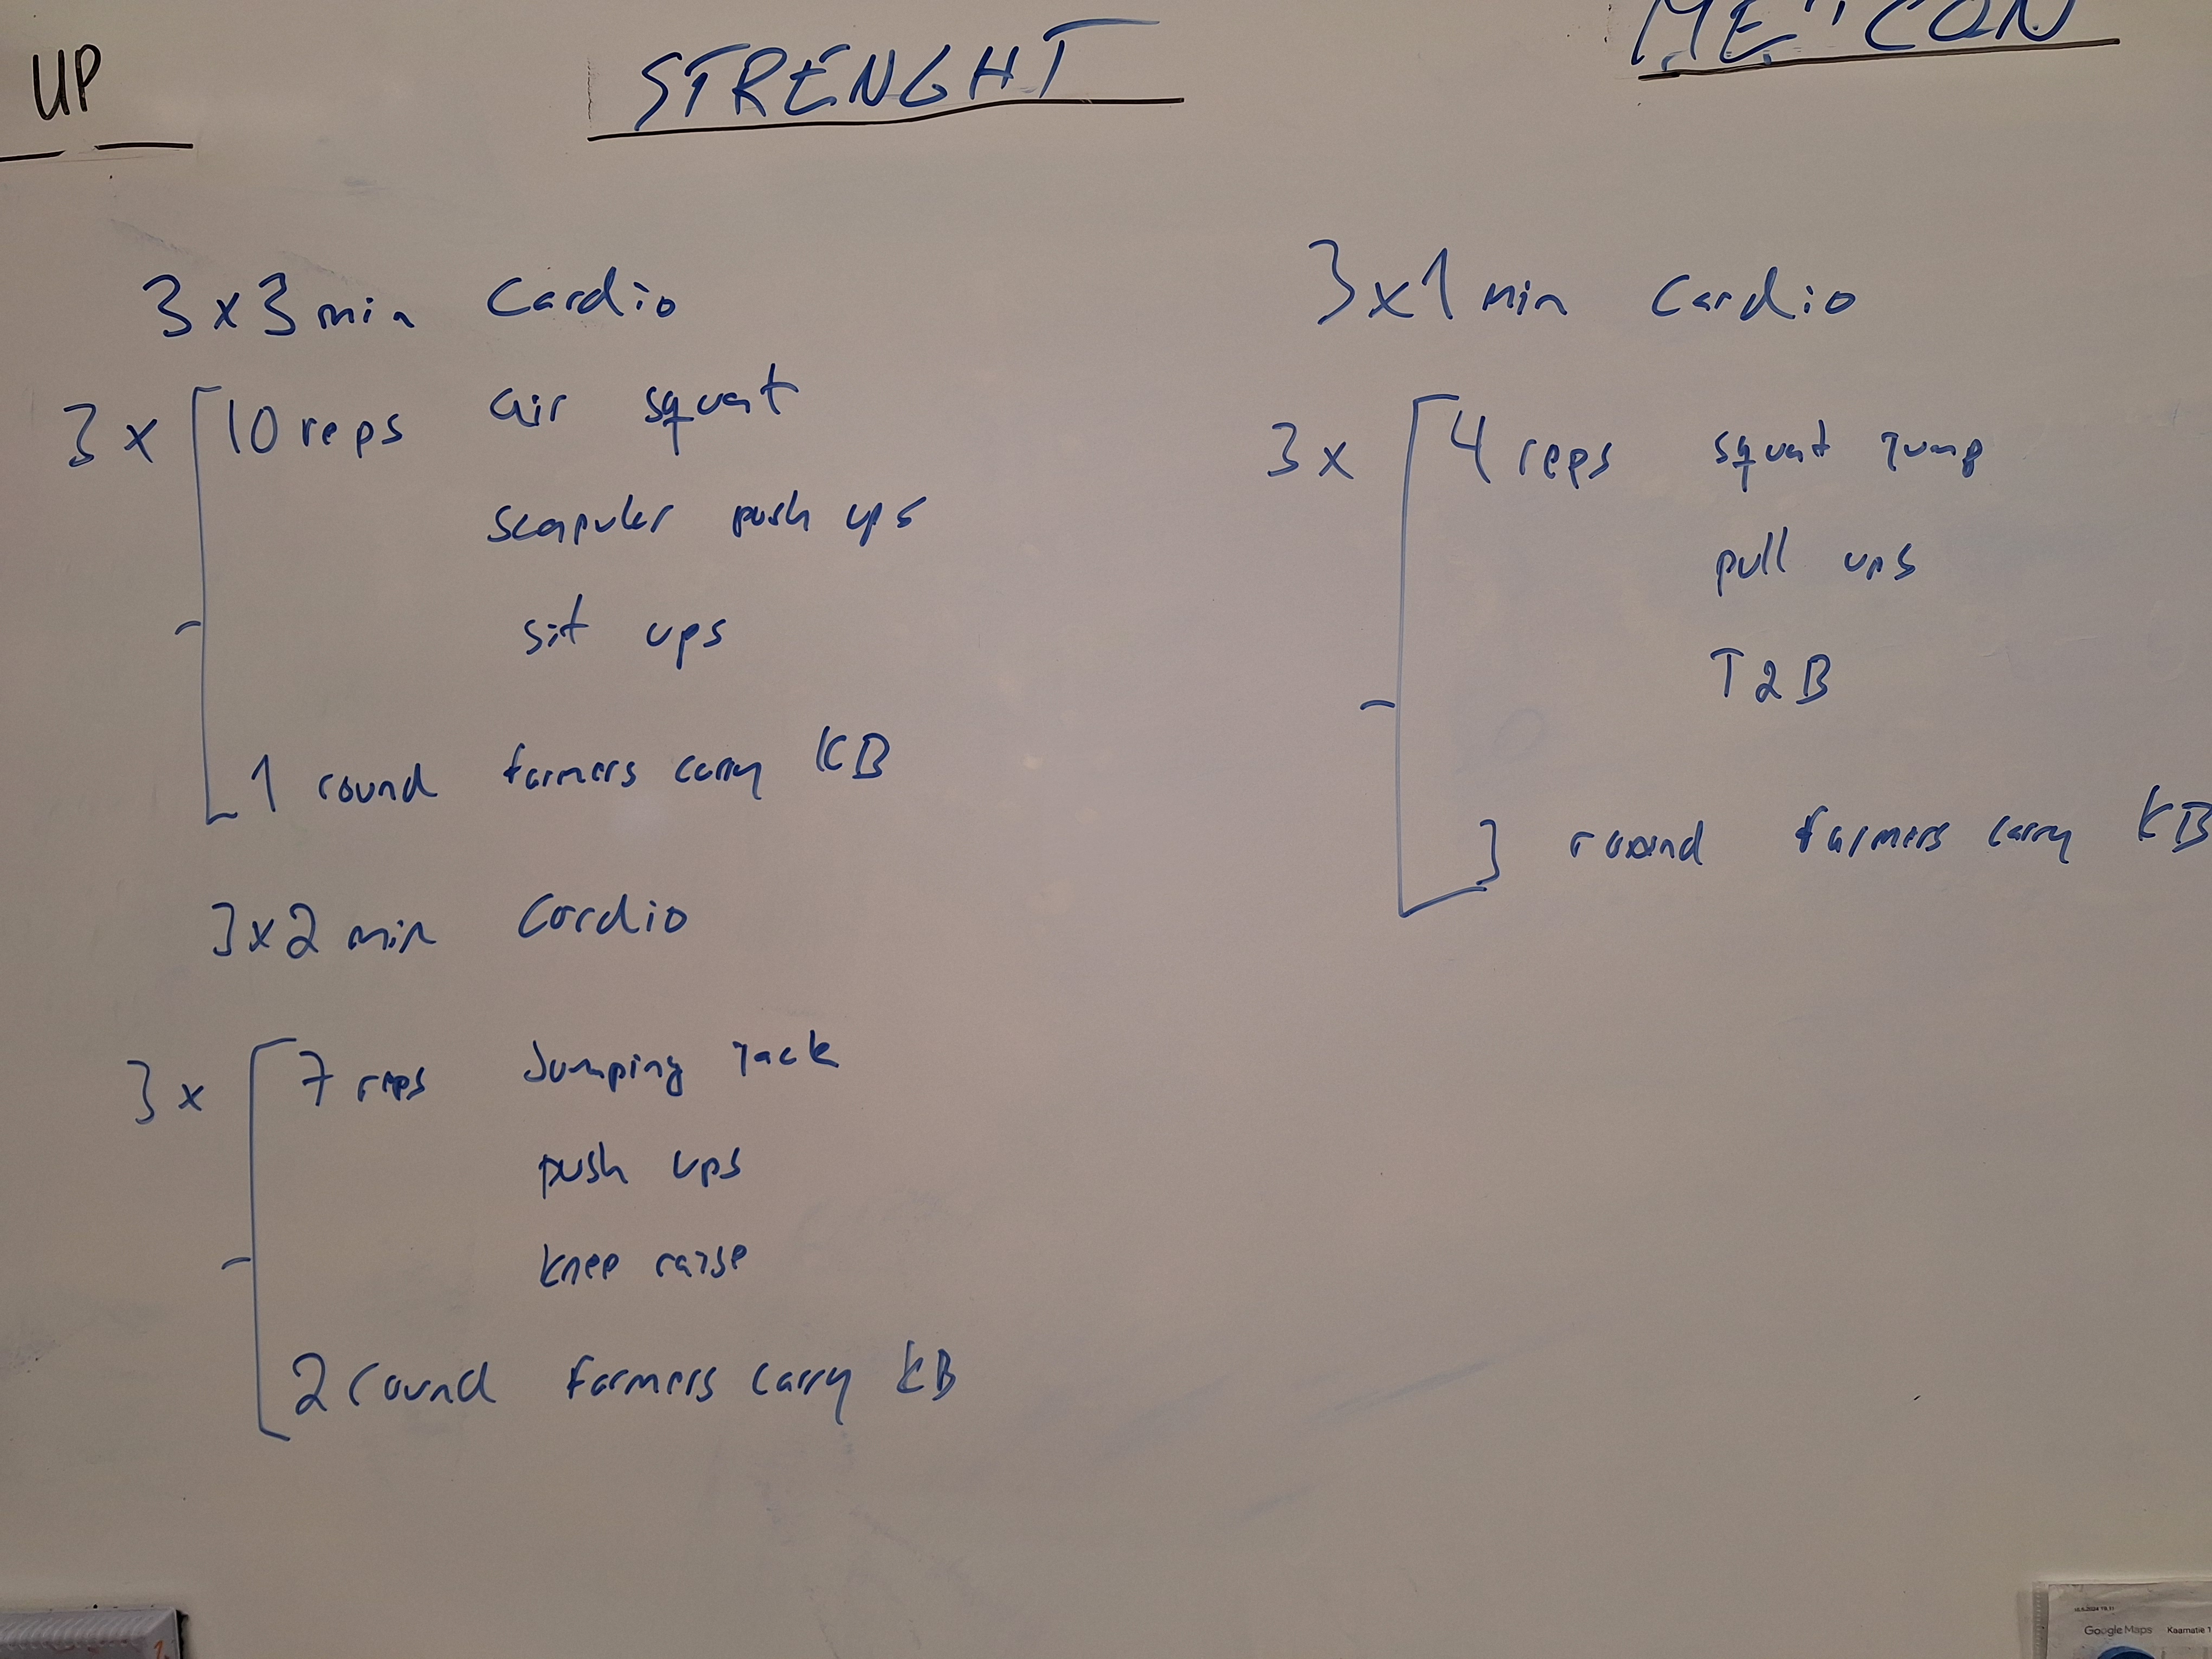 UP
STRENGHT
METCON
3 x 3 min Cardio
3 x 10 reps air squat
scapuler push ups
sit ups
1 round farmers carry KB
3 x 2 min Cardio
3 x 7 reps Jumping jack
push ups
knee raise
2 round farmers carry KB
3 x 1 min Cardio
3 x 4 reps squat jump
pull ups
T2B
3 round farmers carry KB
Google Maps Kaamatie 1